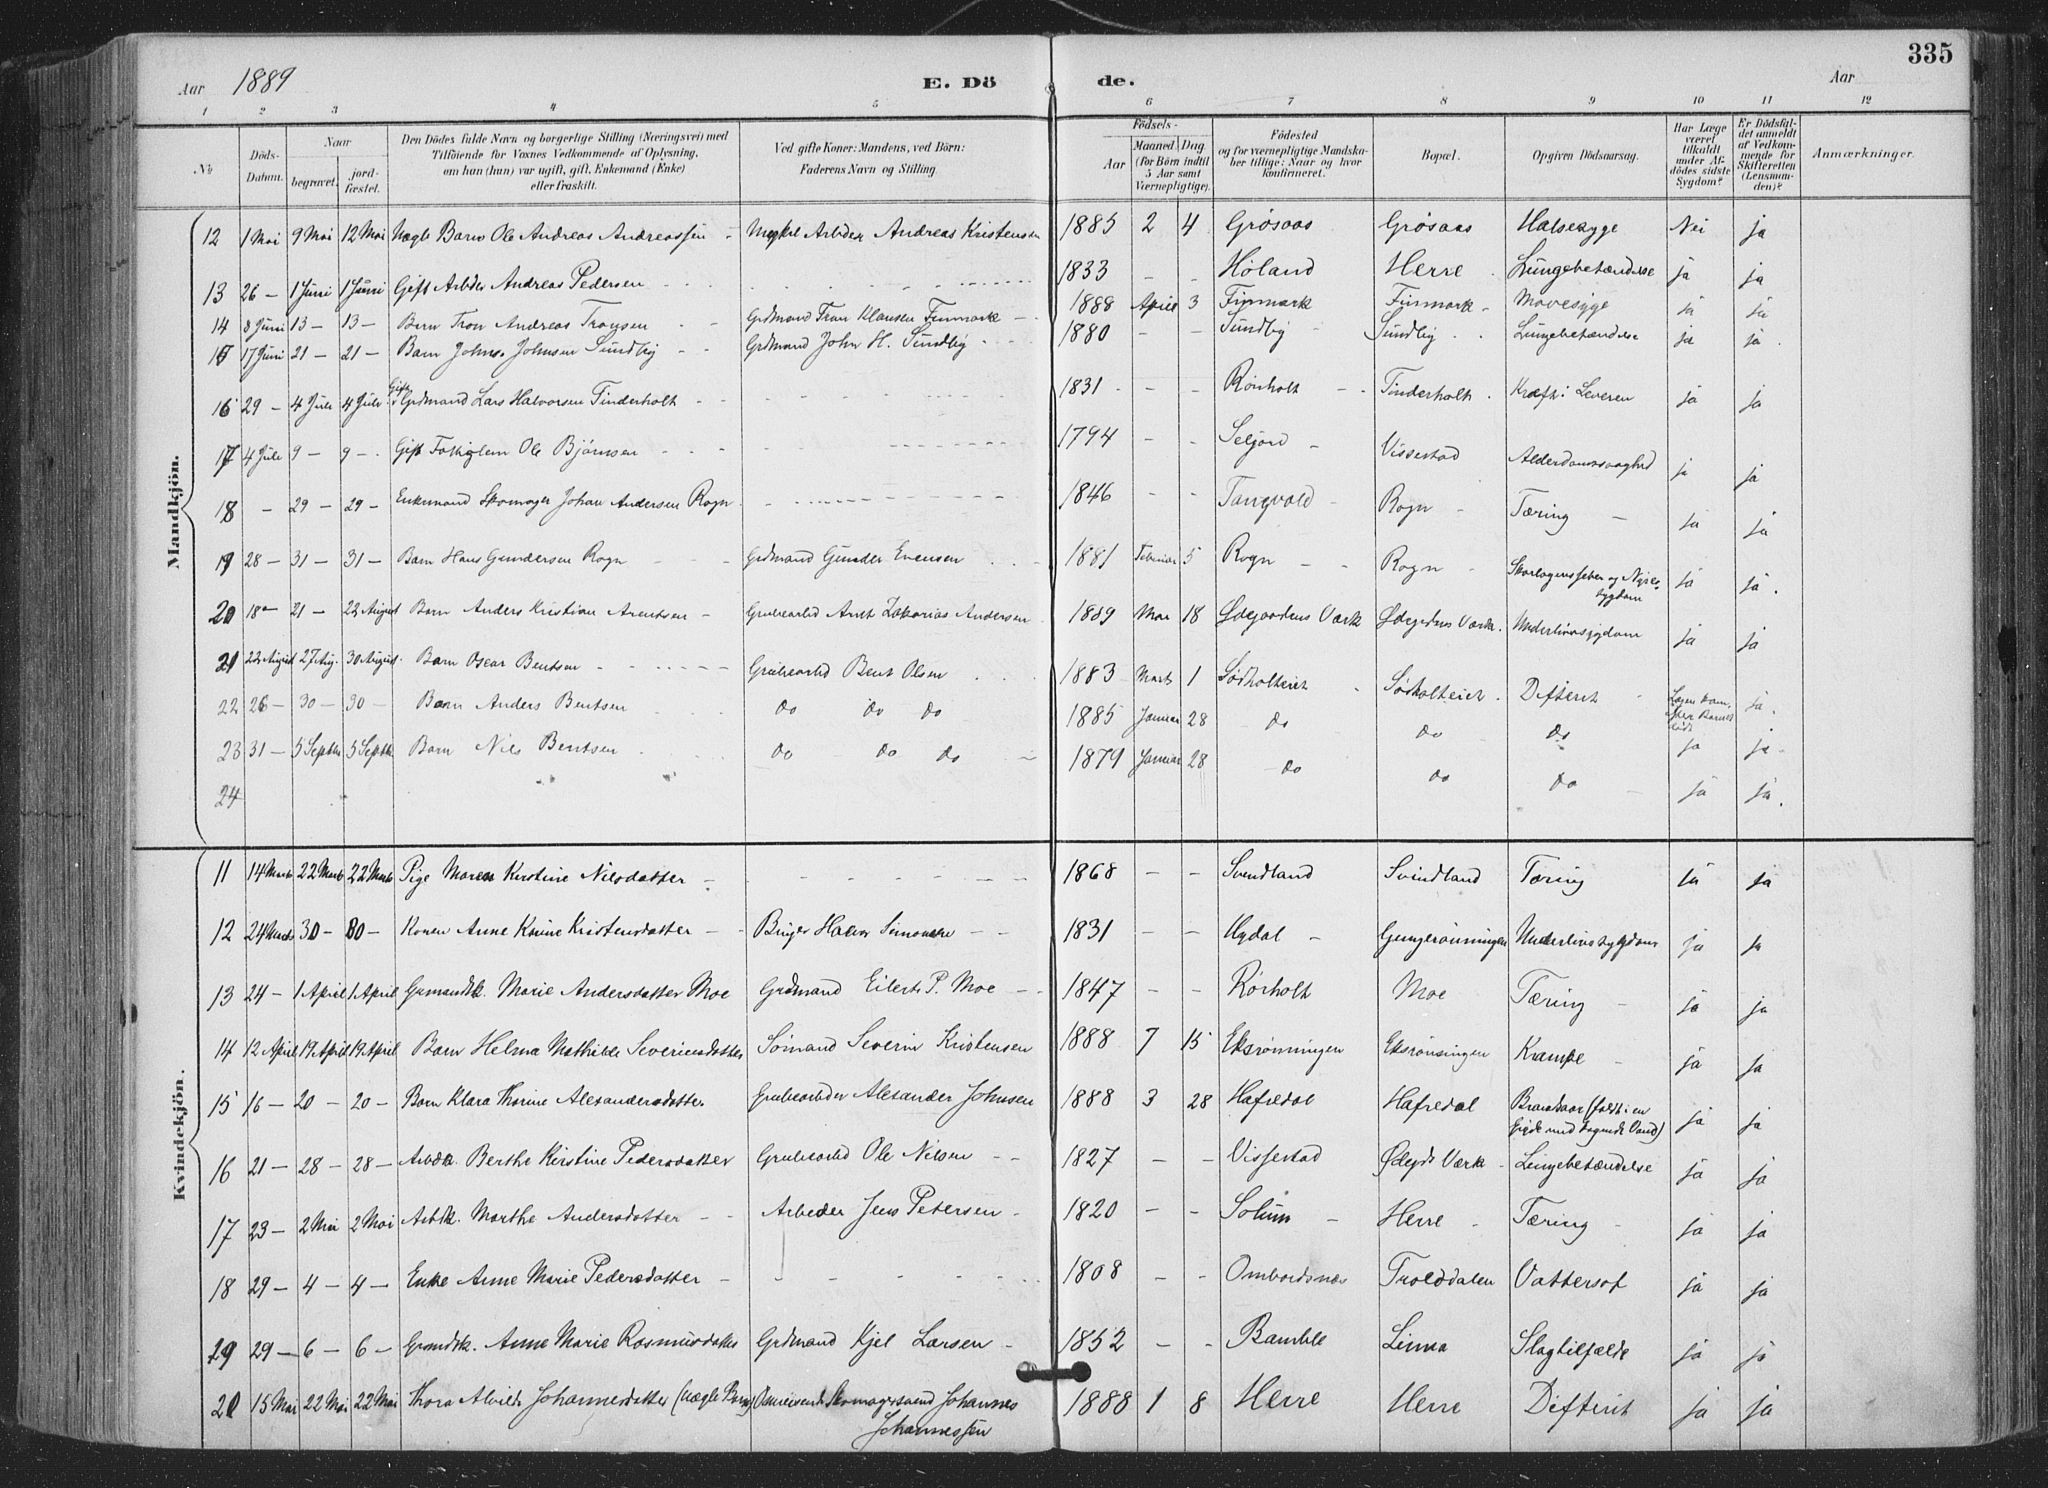 335
Aar 1889 E. Dö de. Aar
1 2 3 4 5 6 7 8 9 10 11 12
No Döds-Datum. Naar begravet. jordfæstet. Den Dödes fulde Navn og borgerlige Stilling (Næringsvei) med Tilföiende for Voxnes Vedkommende af Oplysning, om han (hun) var ugift, gift, Enkemand (Enke) eller fraskilt. Ved gifte Koner: Mandens, ved Börn: Faderens Navn og Stilling. Födsels- Aar Maaned Dag (for Börn indtil 5 Aar samt Værnepligtige). Födested og for værnepligtige Mandskaber tillige: Naar og hvor konfirmeret. Bopæl. Opgiven Dödsaarsag. Har Læge været tilkaldt under Afdödes sidste Sygdom? Er Dödsfaldet anmeldt af Vedkommende for Skifteretten (Lensmanden)? Anmærkninger.
Mandkjön.
12 1 Mai 9 Mai 12 Mai Uægte Barn Ole Andreas Andreassen - Arbeider Andreas Kristensen 1885 2 4 Grøsaas Grøsaas Halsesyge Nei ja
13 26 - 1 Juni 1 Juni Gift Arbder Andreas Pedersen 1833 - - Høland Herre Lungebetændelse ja ja
14 8 Juni 13 - 13 - Barn Tron Andreas Tronsen Grdmand Tron Klausen Finmark - 1888 April 3 Finmark Finmark - Mavesyge ja ja
15 17 Juni 21 - 21 - Barn Johns Johnsen Sundby Grdmand John H. Sundby 1880 Sundby Sundby Lungebetændelse ja ja
16 29 - 4 Juli 4 Juli Gift Grdmand Lars Halvorsen Tinderholt 1831 - - Rörholt Tinderholt Kræft i Leveren ja ja
17 4 Juli 9 - 9 - Gift Ole Bjørnsen 1794 - - Seljord - Vissestad Alderdomssvaghed ja ja
18 - 29 - 29 - Enkemand Skomager Johan Andersen Rogn 1846 - - Tangvald - Rogn - Tæring - ja ja
19 28 - 31 - 31 - Barn Hans Gundersen Rogn Grdmand Gunder Evensen 1881 Februar 5 Rogn Rogn - Skarlagensfeber og Nyresygdom ja ja.
20 18 - 21 - 22 August Barn Anders Kristian Arentsen - Grubearbd Arnt Zakarias Andersen 1889 Mai 18 Ødegaardens Værk Ødegdens Værk. Underlivssygdom ja ja
21 22 August 27 Aug. 30 August. Barn Oscar Bentsen - Grubearbd Bent Olsen 1883 Marts 1 Sødholteiet Sødholteiet. Difterit ja.
22 26 - 30 - 30 - Barn Anders Bentsen do do do 1885 Januar 28 do do do ja ja
23 31 - 5 Septbr 5 Septbr Barn Nils Bentsen do do do 1879 Januar 28 do do do ja ja.
24
Kvindekjön.
11 14 Marts 22 Marts 22 Marts Pige Maren Kirstine Nilsdatter - 1868 - - Svindland Svindland Tæring ja ja
12 24 Marts 30 - 30 - Konen Anne Karine Kristensdatter - Bruger Halvor Simonsen - 1831 - - Uydal - Gungerönningen Underlivssygdom ja ja
13 24 - 1 April 1 April Grmandsk. Marie Andersdatter Moe Grdmand Eilert P. Moe - 1847 - - Rörholt Moe Tæring - ja ja
14 12 April 19 April 19 April Barn Helma Mathilde Severiensdatter Sömand Severin Kristensen 1888 7 15 Eksrönningen Eksrönningen Krampe ja ja
15 16 - 20 - 20 - Barn Klara Thorine Alexandersdatter. Grubearbeider Alexander Johnsen 1888 3 28 Hafredal Hafredal Brandsaar (faldt i en Gryde med kogende Vand) ja ja
16 21 - 28 - 28 - Arbdk. Berthe Kirstine Pedersdatter Grubearbd Ole Nilsen - 1827 - - Vissestad Ødegds Værk - Lungebetændelse ja ja
17 23 - 2 Mai 2 Mai Arbdk. Marthe Andersdatter - Arbeider Jens Petersen - 1820 - - Solum - Herre - Tæring - ja ja
18 29 - 4 - 4 - Enke Anne Marie Pedersdatter - 1808 - - Ombordsnes Trolddalen Vattersot ja ja
19 29 - 6 - 6 - Grmdsk. Anne Marie Rasmusdatter Grdmand Kjel Larsen - 1852 - - Bamble Linna Slagtilfælde ja ja
20 15 Mai 22 Mai 22 Mai Thora Alvilde Johannesdatter (uægte Barn) Skomagersvend Johannes Johannessen 1888 1 8 Herre Herre Difterit ja ja